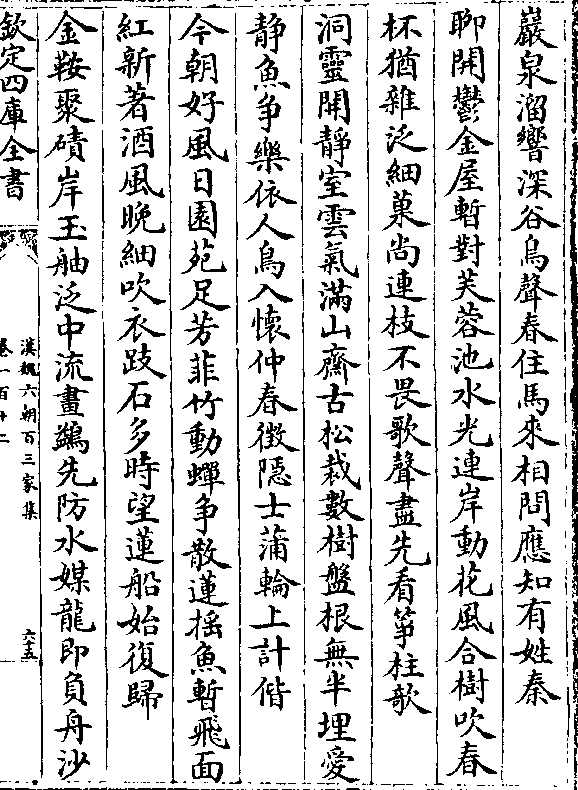 巖泉溜響深谷鳥聲春住馬來相問應知有姓秦
聊開鬱金屋暫對芙蓉池水光連岸動花風合樹吹春
杯猶雜泛細菓尚連枝不畏歌聲盡先看箏柱欹
洞靈開靜室雲氣滿山齋古松裁數樹盤根無半埋愛
静魚争樂依人鳥入懷仲春徵隱士蒲輪上計偕
今朝好風日園苑足芳菲竹動蟬争散蓮摇魚暫飛面
紅新著酒風晚細吹衣跂石多時望蓮船始復歸
金鞍聚磧岸玉舳泛中流畫鷁先防水媒龍即負舟沙
欽定四庫全書
漢魏六朝百三家集
卷一百十二
六十五